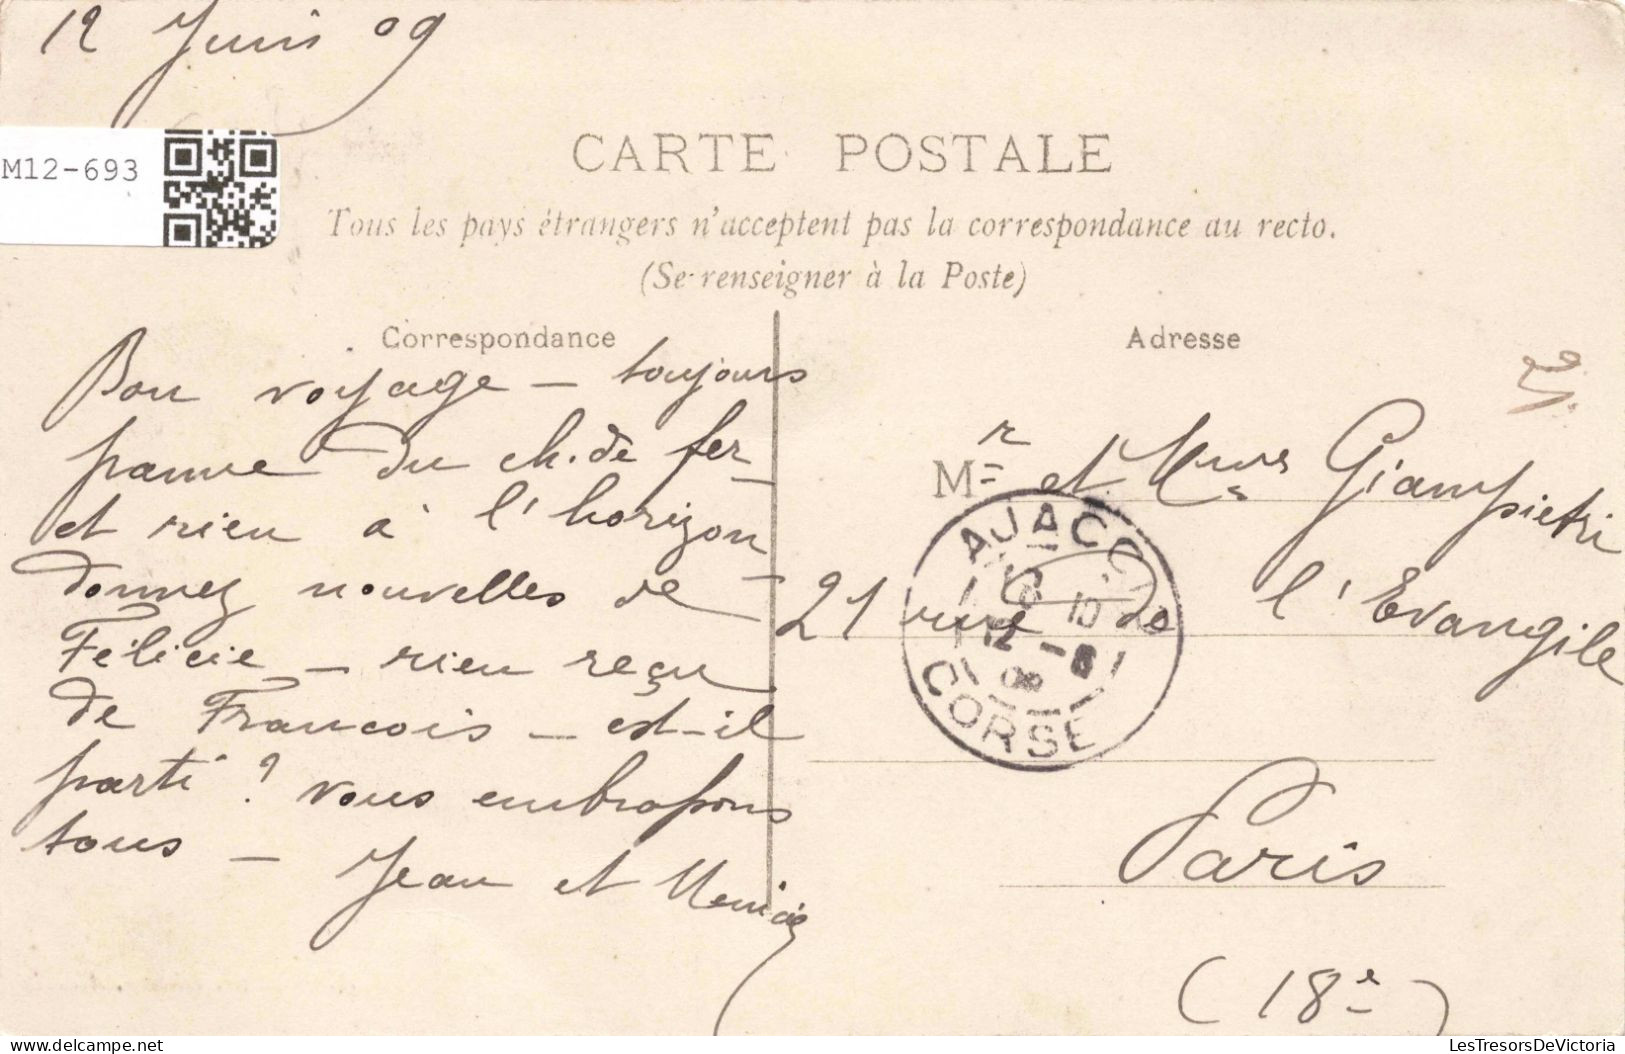 12 Juin 09
M12-693
CARTE POSTALE
Tous les pays étrangers n'acceptent pas la correspondance au recto.
(Se renseigner à la Poste)
Correspondance
Bon voyage - toujours
panne du ch. de fer -
et rien à l'horizon -
donnez nouvelles de
Félicie - rien reçu
de Francois - est-il
parti ? vous embrassons
tous -
Jean et
Adresse
Mr et Mmes Giampietri
21 rue de l'Evangile
Paris
(18e)
AJACCIO
12 -6
09
CORSE
LesTresorsDeVictoria